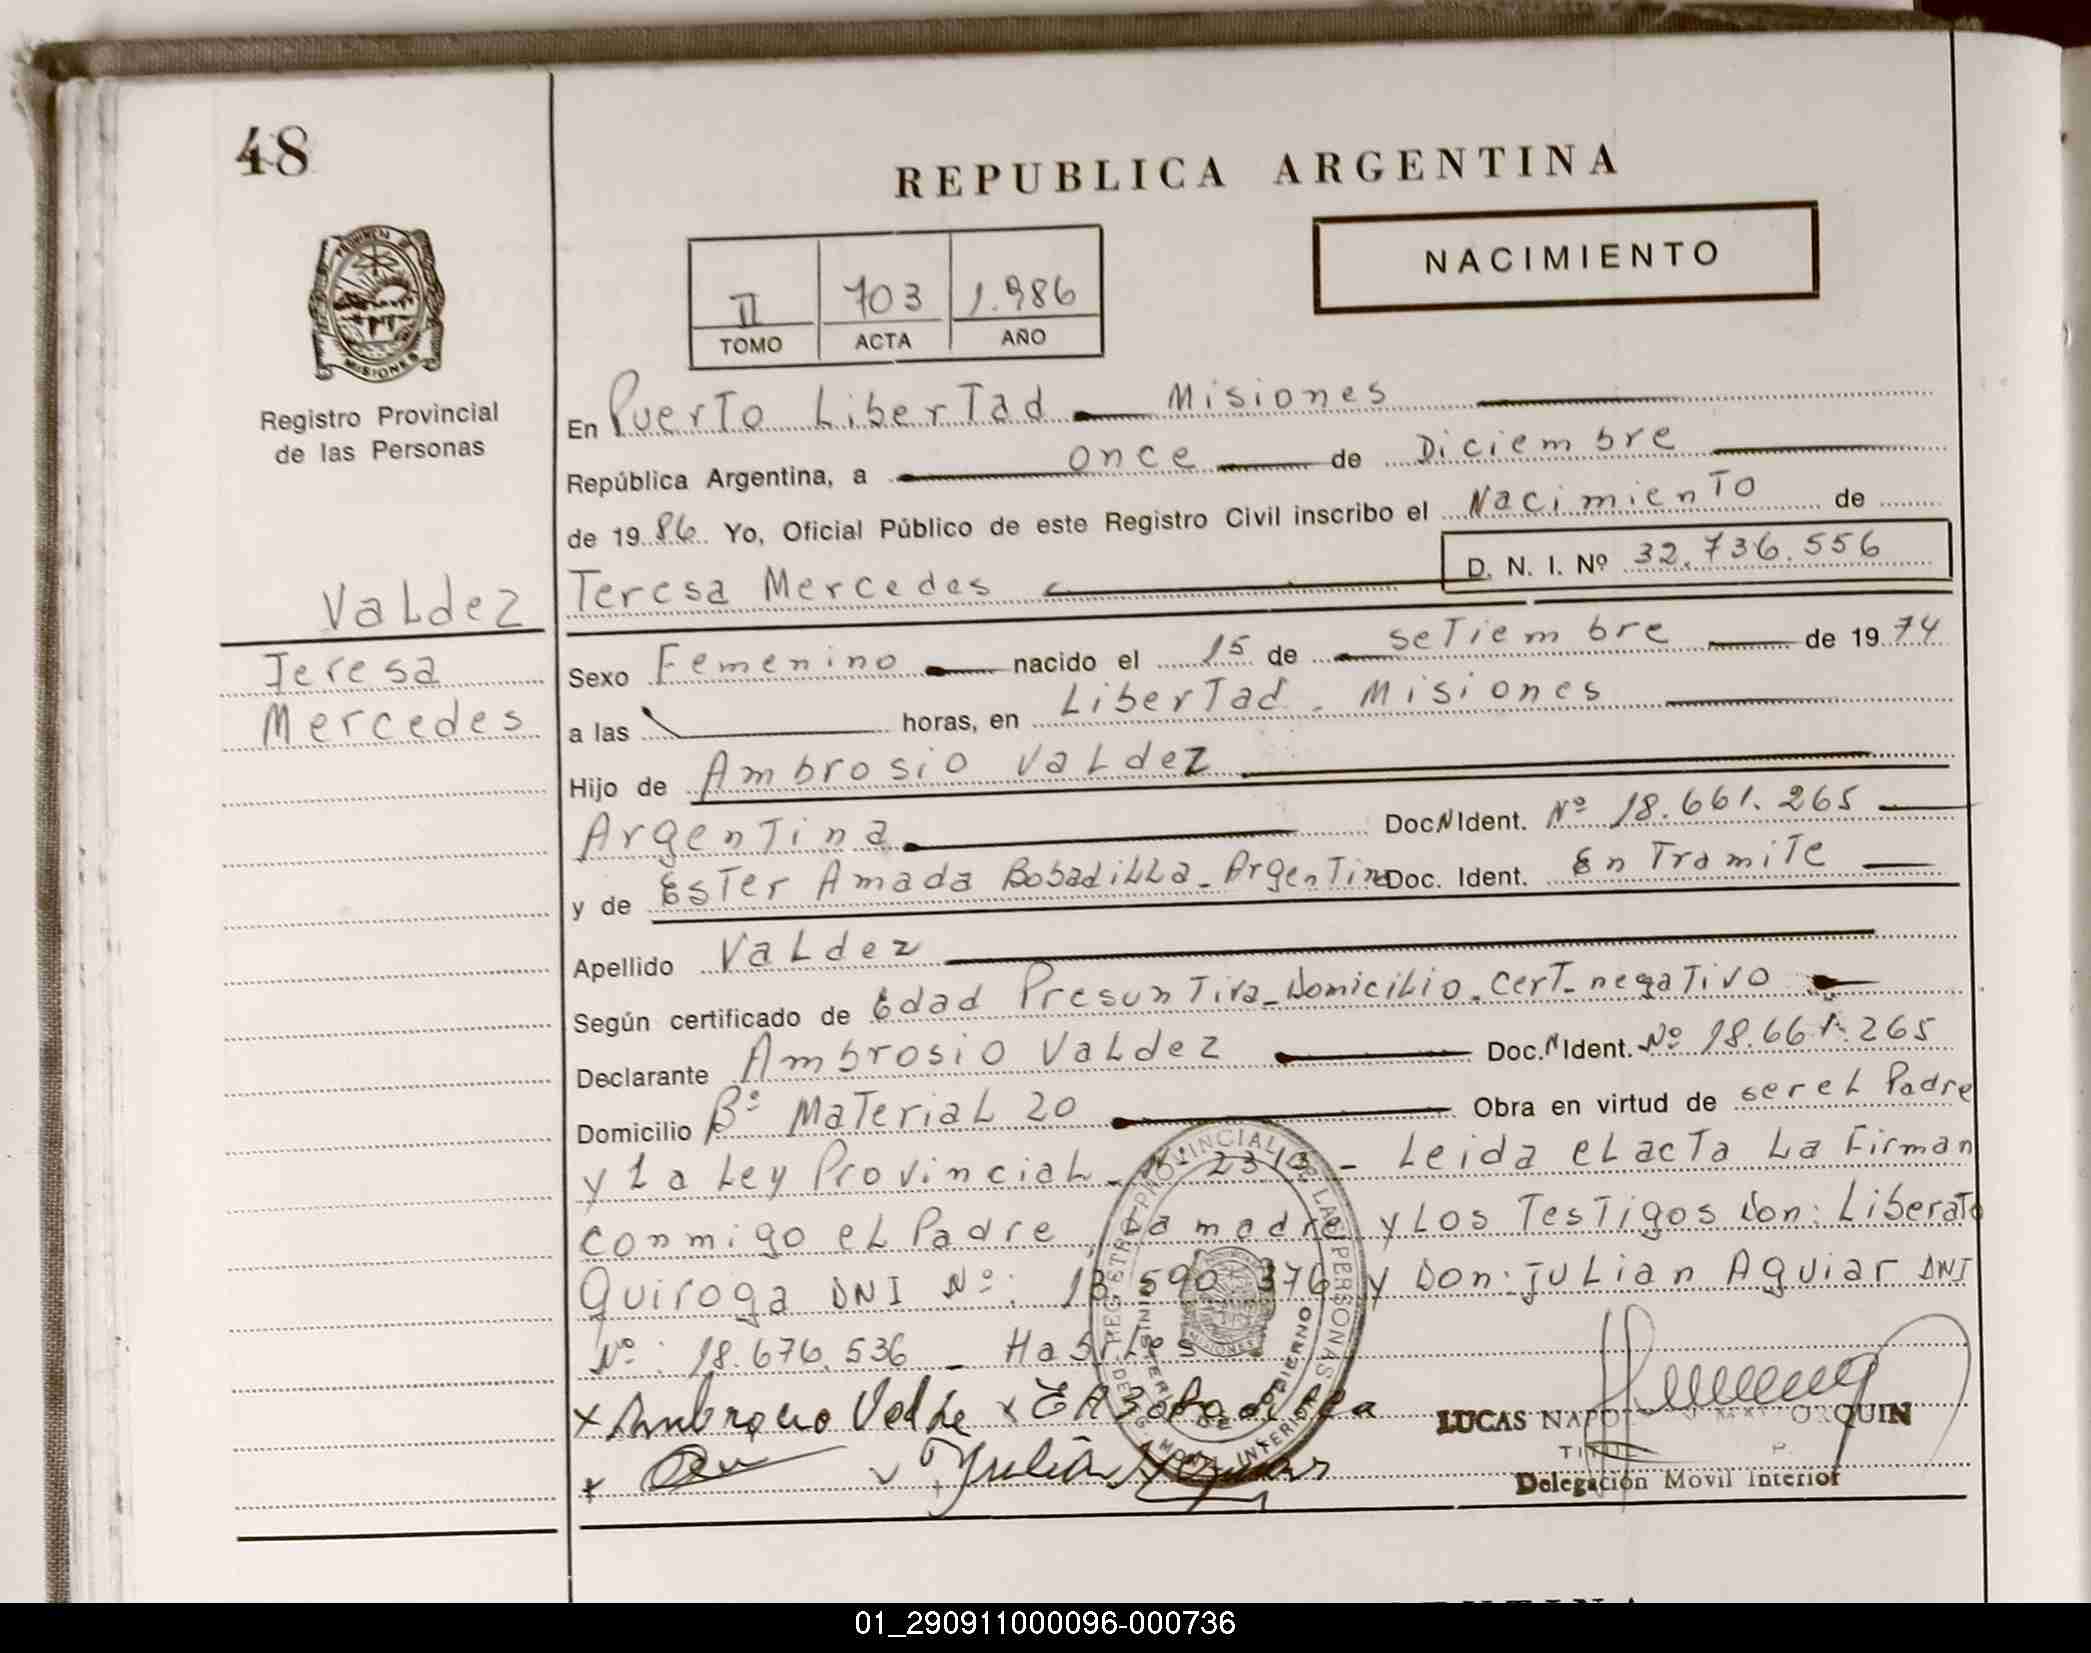 48
REPUBLICA ARGENTINA
NACIMIENTO
II 703 1.986
TOMO ACTA AÑO
PROVINCIA DE
MISIONES
Registro Provincial
de las Personas
En Puerto Libertad - Misiones
República Argentina, a once de Diciembre
de 1986 Yo, Oficial Público de este Registro Civil inscribo el Nacimiento de
D. N. I. Nº 32.736.556
Valdez
Teresa
Mercedes
Teresa Mercedes
Sexo Femenino nacido el 15 de setiembre de 1974
a las horas, en Libertad - Misiones
Hijo de Ambrosio Valdez
Argentina Doc. N Ident. Nº 18.661.265
y de Ester Amada Bobadilla - Argentina Doc. Ident. En Tramite
Apellido Valdez
Según certificado de Edad Presuntiva - Domicilio - Cert. negativo
Declarante Ambrosio Valdez Doc. N Ident. Nº 18.661.265
Domicilio Bº Material 20 Obra en virtud de ser el Padre
y la Ley Provincial Nº 2313 - Leida el acta la Firman
conmigo el Padre, La madre y los Testigos Don: Liberato
Quiroga DNI Nº: 13.590.376 y Don: Julian Aguiar DNI
Nº: 18.676.536 - Habiles
REGISTRO PROVINCIAL DE LAS PERSONAS
MINISTERIO DE GOBIERNO
MISIONES
INTERIOR
x Ambrosio Valde x E A Bobadilla
Julián Aguiar
LUCAS
Delegación Movil Interior
01_290911000096-000736